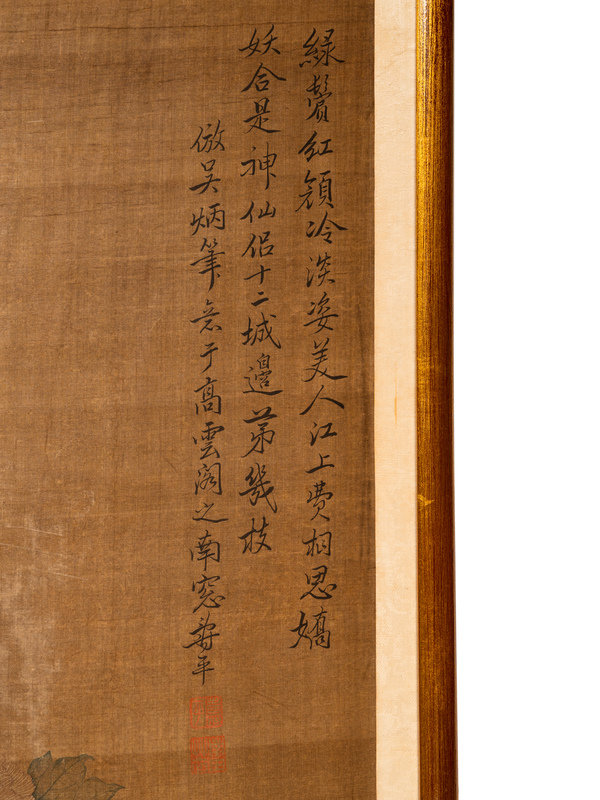 綠鬢紅顔冷淡姿美人江上費相思嬌
妖合是神仙侶十二城邊苐幾枝
倣吴炳筆意于高雲阁之南窓壽平